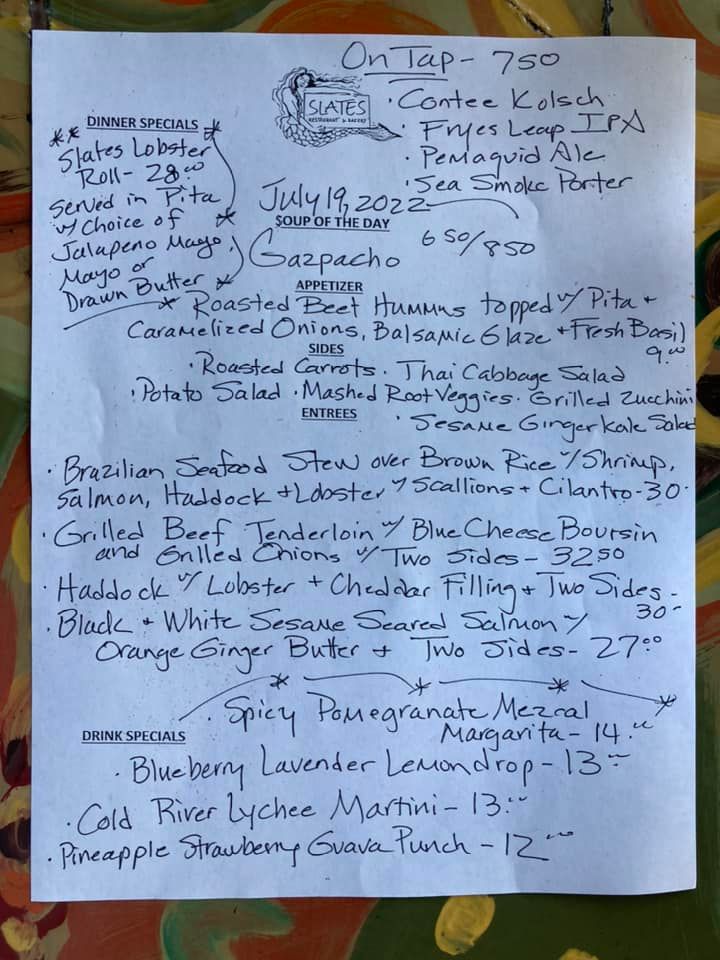 On Tap - 750
· Contee Kolsch
· Fryes Leap IPA
· Pemaquid Ale
· Sea Smoke Porter
SLATES
RESTAURANT & BAKERY
DINNER SPECIALS
Slates Lobster
Roll - 28.00
Served in Pita
w/ Choice of
Jalapeno Mayo,
Mayo or
Drawn Butter
July 19, 2022
SOUP OF THE DAY
Gazpacho 650/850
APPETIZER
Roasted Beet Hummus topped w/ Pita +
Caramelized Onions, Balsamic Glaze + Fresh Basil
9.00
SIDES
· Roasted Carrots · Thai Cabbage Salad
· Potato Salad · Mashed Root Veggies · Grilled Zucchini
ENTREES
· Sesame Ginger Kale Salad
· Brazilian Seafood Stew over Brown Rice w/ Shrimp,
Salmon, Haddock + Lobster w/ Scallions + Cilantro - 30-
· Grilled Beef Tenderloin w/ Blue Cheese Boursin
and Grilled Onions w/ Two Sides - 3250
· Haddock w/ Lobster + Cheddar Filling + Two Sides -
30-
· Black + White Sesame Seared Salmon w/
Orange Ginger Butter + Two Sides - 27.00
· Spicy Pomegranate Mezcal
Margarita - 14.00
DRINK SPECIALS
· Blueberry Lavender Lemondrop - 13.00
· Cold River Lychee Martini - 13.00
· Pineapple Strawberry Guava Punch - 12.00